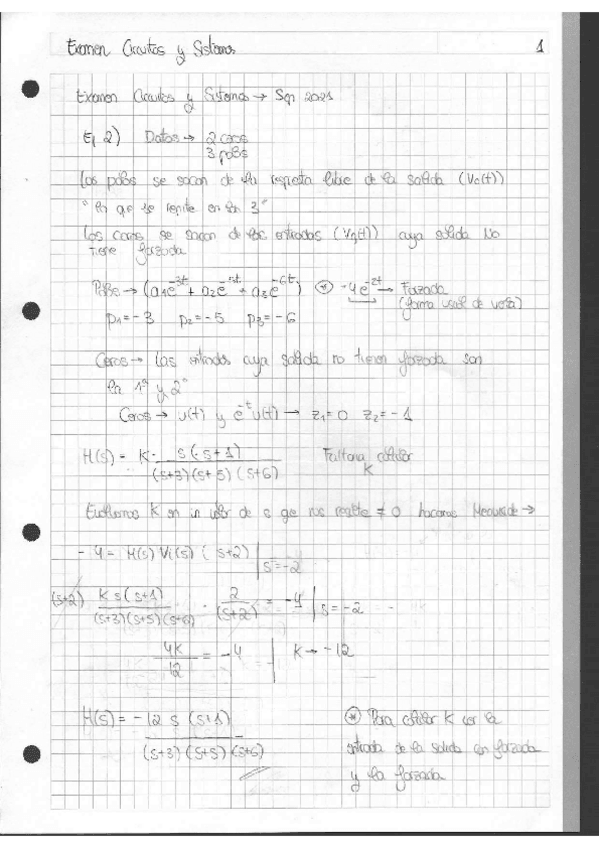 Examen Circuitos y Sistemas 1
Examen Circuitos y Sistemas → Sep 2021
Ej 2) Datos → 2 ceros
3 polos
Los polos se sacan de la respuesta libre de la salida (Vo(t))
"la que se repite en las 3"
Los ceros se sacan de las entradas (Vg(t)) cuya salida No
tiene forzada
Polos → (a₁e^-3t + a₂e^-5t + a₃e^-6t) ⊛ -4e^-2t → Forzada
p₁=-3 p₂=-5 p₃=-6 (forma usual de verla)
Ceros → Las entradas cuya salida no tienen forzada son
la 1ª y 2ª
Ceros → u(t) y e^-t u(t) → z₁=0 z₂=-1
H(s) = K· s(s+1) / (s+3)(s+5)(s+6) Faltaria calcular
K
K en un valor de s que nos ≠0 hacemos →
-4 = H(s) Vi(s) (s+2) |s=-2
(s+2) K s(s+1) / (s+3)(s+5)(s+6) · 2 / (s+2) = -4 | s=-2
4K / 12 = -4 K → -12
H(s) = -12 s (s+1) / (s+3) (s+5) (s+6)
⊛ Para calcular K con la
entrada de la salida con forzada
y la forzada